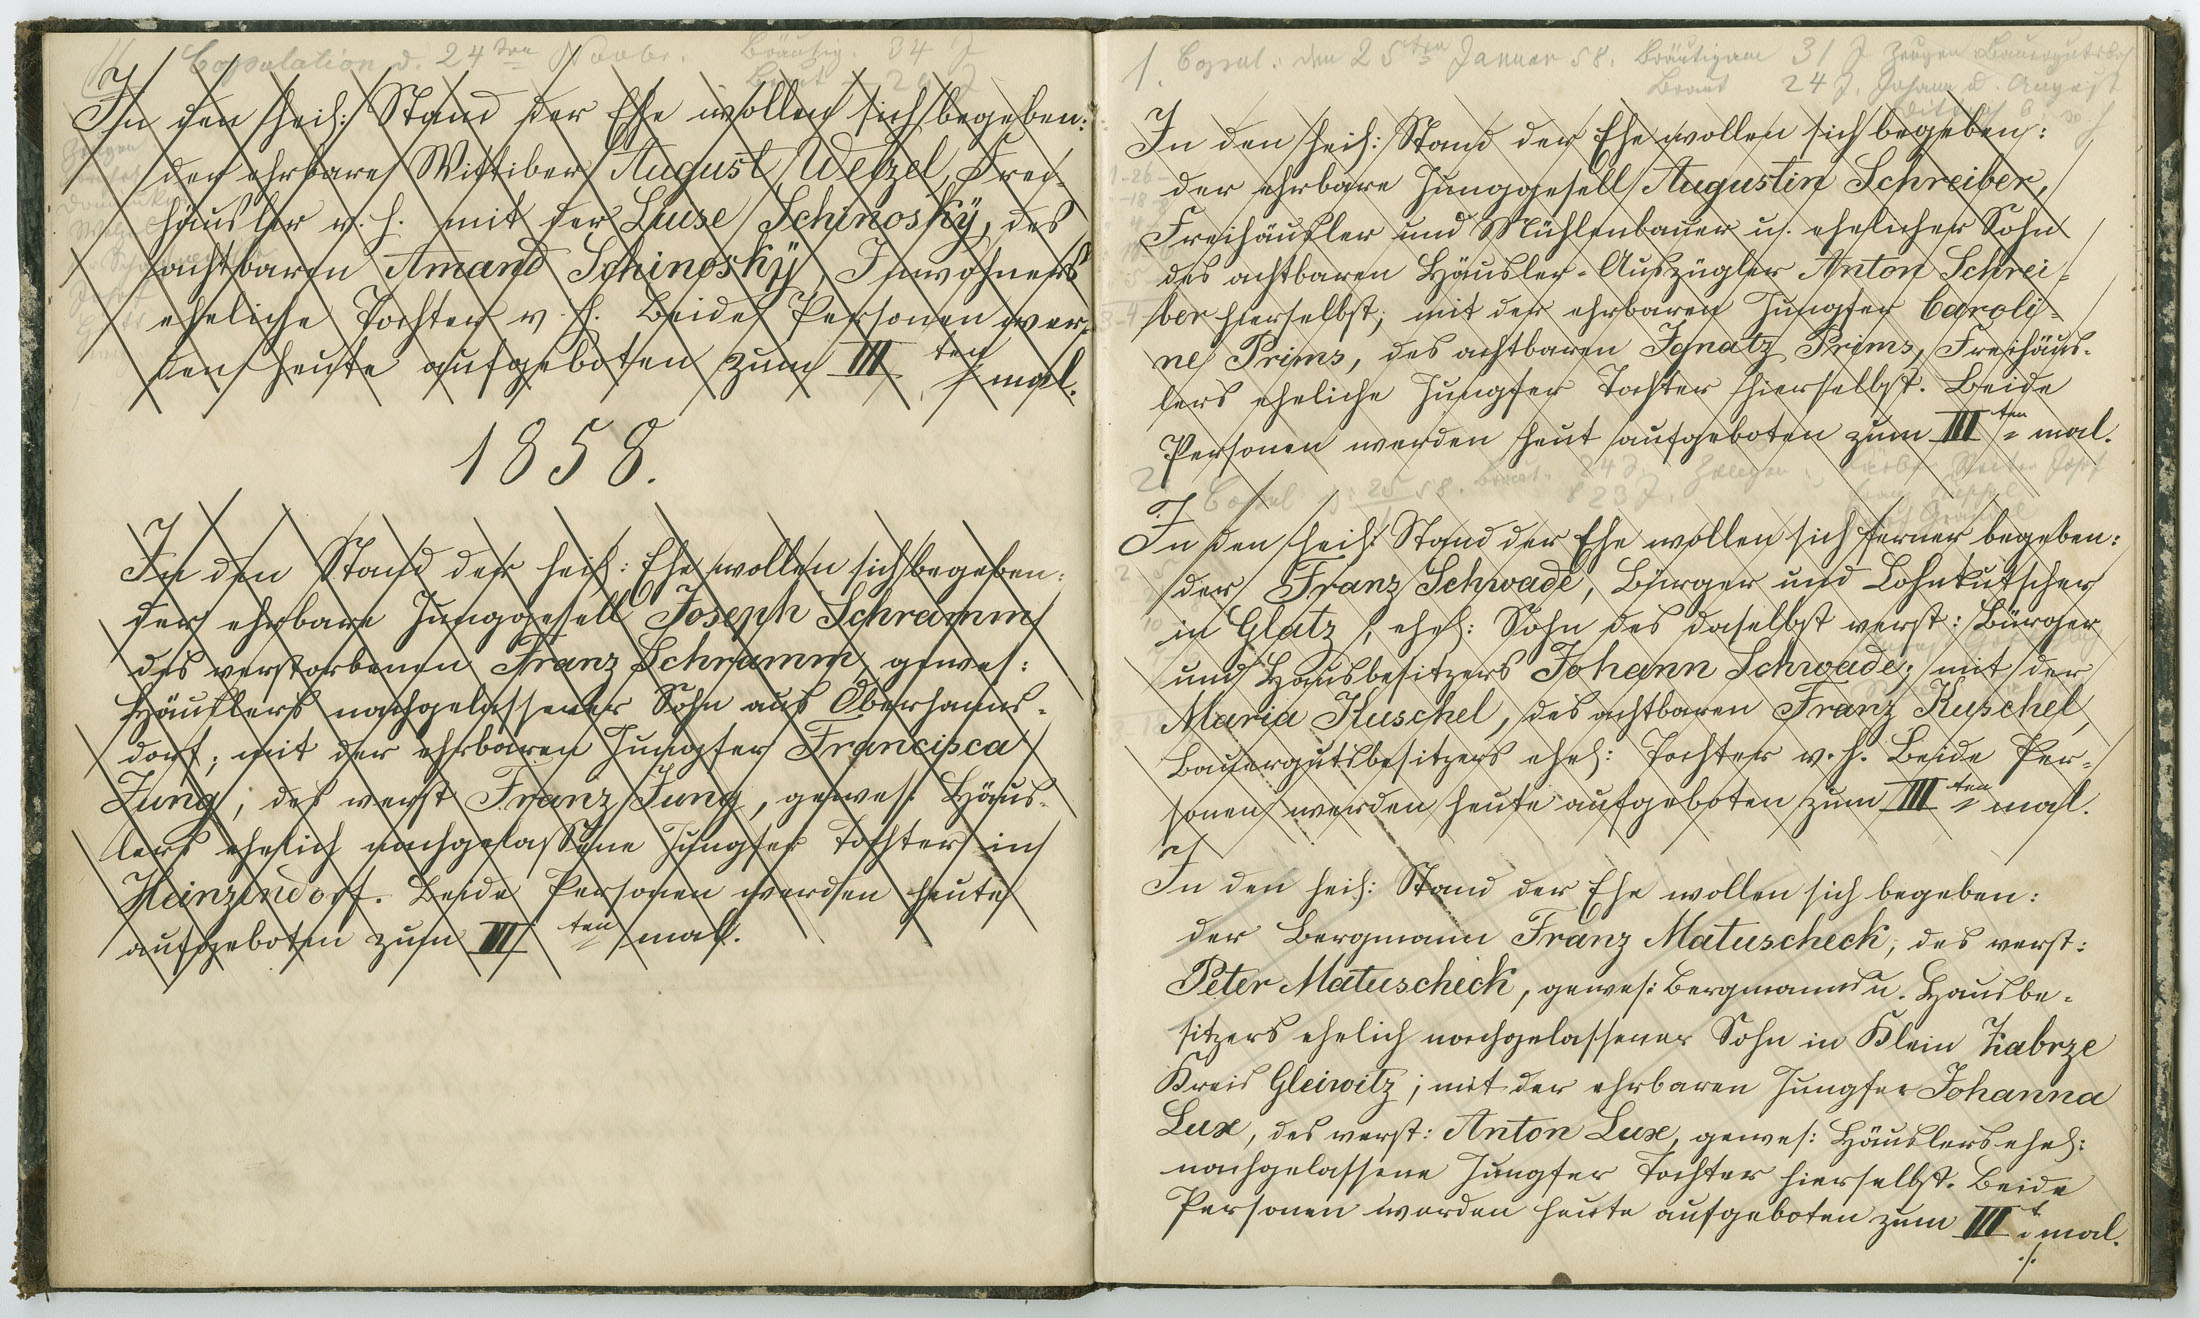 Copulation d. 24ten Novbr. Bräutig. 34 J
Braut 26 J
In den heil: Stand der Ehe wollen sich begeben:
der ehrbare Wittiber August Welzel, Frei-
häusler v. h. mit der Luise Schinoskÿ, des
achtbaren Amand Schinoskÿ, Inwohners
eheliche Tochter v. h. Beide Personen wer-
den heute aufgeboten zum III ten mal.
1858.
In den Stand der heil: Ehe wollen sich begeben:
der ehrbare Junggesell Joseph Schramm
des verstorbenen Franz Schramm, gewes:
Häuslers nachgelassener Sohn aus Oberhanns-
dorf; mit der ehrbaren Jungfer Francisca
Jung, des verst Franz Jung, gewes: Häus-
lers ehelich nachgelassene Jungfer Tochter in
Heinzendorf. Beide Personen werden heute
aufgeboten zum III ten mal.
1. Copul: den 25ten Januar 58. Bräutigam 31 J Zeugen Bauergutsbes
Braut 24 J. Johann u. August
In den heil: Stand der Ehe wollen sich begeben:
der ehrbare Junggesell Augustin Schreiber,
Freihäusler und Mühlenbauer u. ehelicher Sohn
des achtbaren Häusler-Auszügler Anton Schrei-
ber hierselbst; mit der ehrbaren Jungfer Caroli-
ne Prims, des achtbaren Ignatz Prims, Freihäus-
lers eheliche Jungfer Tochter hierselbst. Beide
Personen werden heut aufgeboten zum III ten mal.
2. Copul 25 58. 24 J. Zeugen: Josef
23 J.
In den heil: Stand der Ehe wollen sich ferner begeben:
der Franz Schwade, Bürger und Lohnkutscher
in Glatz, ehel: Sohn des daselbst verst: Bürger
und Hausbesitzers Johann Schwade; mit der
Maria Kuschel, des achtbaren Franz Kuschel,
Bauergutsbesitzers ehel: Tochter v. h. Beide Per-
sonen werden heute aufgeboten zum III ten mal.
In den heil: Stand der Ehe wollen sich begeben:
der Bergmann Franz Matuscheck, des verst:
Peter Matuscheck, gewes: Bergmanns u. Hausbe-
sitzers ehelich nachgelassener Sohn in Klein Zabrze
Kreis Gleiwitz; mit der ehrbaren Jungfer Johanna
Lux, des verst: Anton Lux, gewes: Häuslers ehel:
nachgelassene Jungfer Tochter hierselbst. Beide
Personen werden heute aufgeboten zum III t mal.
./.